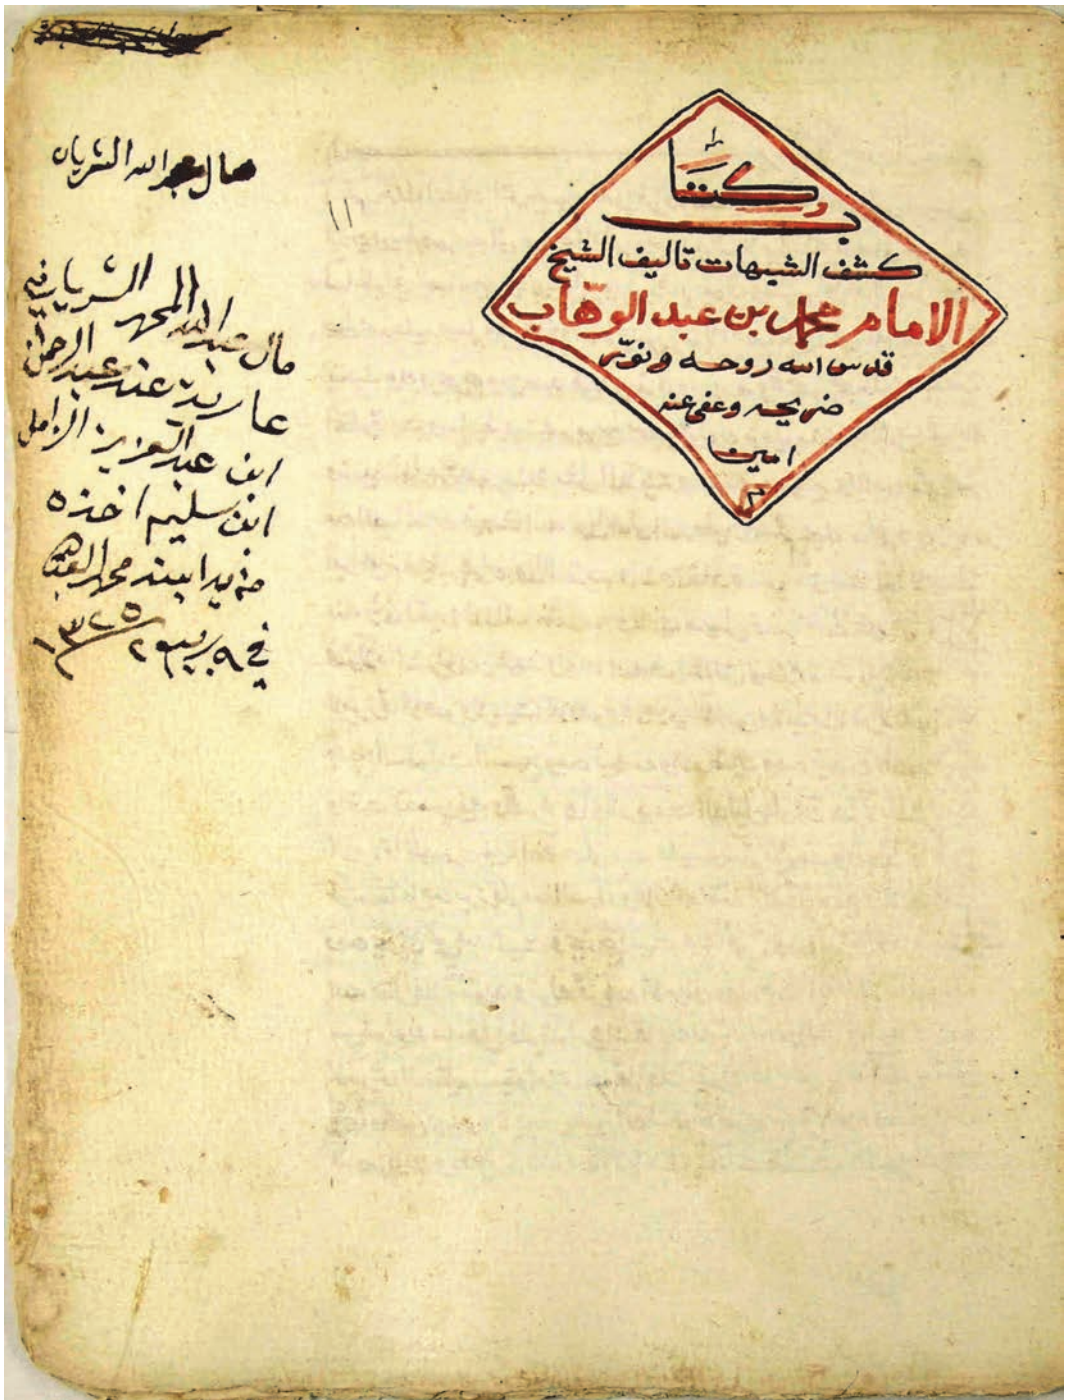 كتاب
كشف الشبهات تاليف الشيخ
الامام محمد بن عبد الوهاب
قدس الله روحه ونوّر
ضريحه وعفى عنه
امين
م
١١
مال عبدالله الشريان
مال عبدالله المحمد الشريان في
عارية عند عبدالرحمن
ابن عبدالعزيز الزامل
ابن سليم اخذه
من يد ابنه محمد
في ٩ ٢ ١٣٢٥